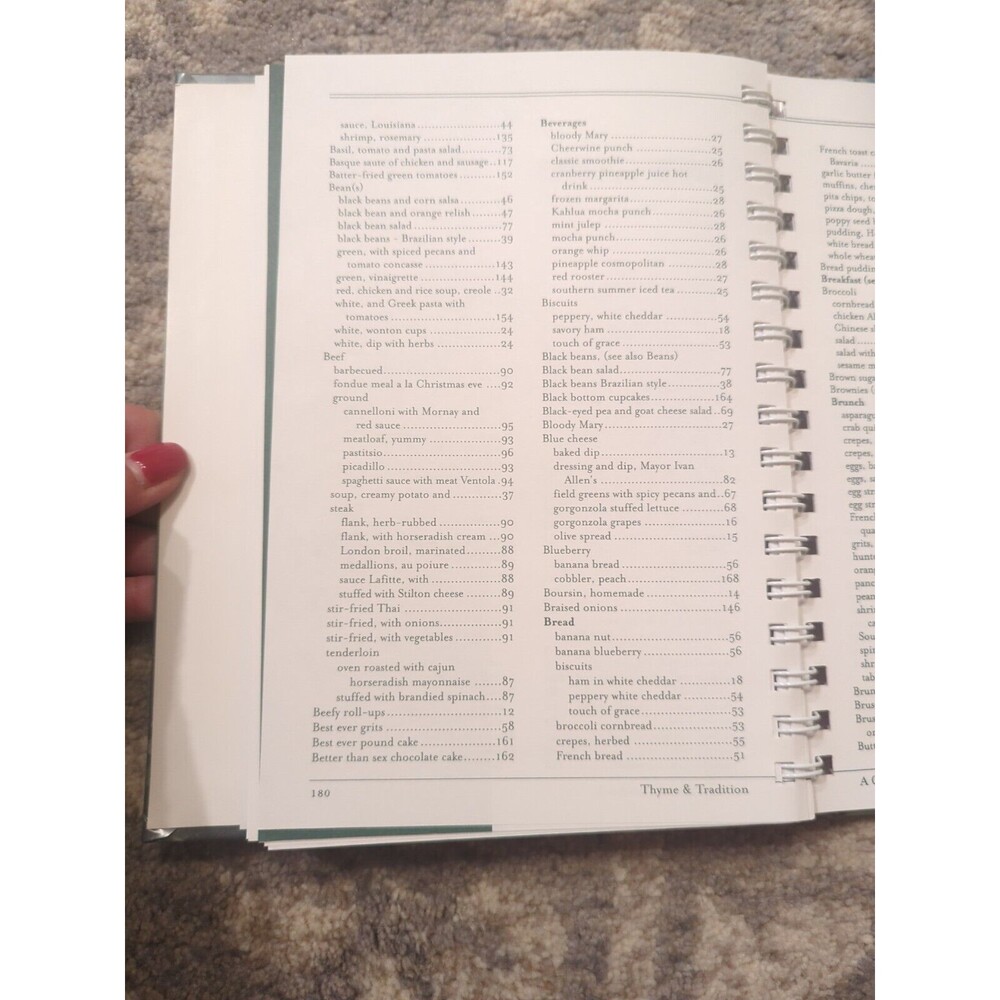 sauce, Louisiana....................44
shrimp, rosemary ..................135
Basil, tomato and pasta salad.........73
Basque saute of chicken and sausage..117
Batter-fried green tomatoes .........152
Bean(s)
black beans and corn salsa.............46
black bean and orange relish..........47
black bean salad ......................77
black beans - Brazilian style..........39
green, with spiced pecans and
tomato concasse ..................143
green, vinaigrette ....................144
red, chicken and rice soup, creole ..32
white, and Greek pasta with
tomatoes ............................154
white, wonton cups ...................24
white, dip with herbs .................24
Beef
barbecued..............................90
fondue meal a la Christmas eve ....92
ground
cannelloni with Mornay and
red sauce ..........................95
meatloaf, yummy ....................93
pastitsio..............................96
picadillo ..............................93
spaghetti sauce with meat Ventola .94
soup, creamy potato and .............37
steak
flank, herb-rubbed ..................90
flank, with horseradish cream ...90
London broil, marinated...........88
medallions, au poiure ..............89
sauce Lafitte, with ..................88
stuffed with Stilton cheese .........89
stir-fried Thai ..........................91
stir-fried, with onions.................91
stir-fried, with vegetables ............91
tenderloin
oven roasted with cajun
horseradish mayonnaise .......87
stuffed with brandied spinach....87
Beefy roll-ups............................12
Best ever grits ...........................58
Best ever pound cake.................161
Better than sex chocolate cake.......162
180
Beverages
bloody Mary ..........................27
Cheerwine punch .....................25
classic smoothie......................26
cranberry pineapple juice hot
drink ...............................25
frozen margarita......................28
Kahlua mocha punch.................26
mint julep ............................28
mocha punch.........................26
orange whip ..........................26
pineapple cosmopolitan .............28
red rooster............................27
southern summer iced tea ...........25
Biscuits
peppery, white cheddar ..............54
savory ham ...........................18
touch of grace........................53
Black beans, (see also Beans)
Black bean salad.........................77
Black beans Brazilian style.............38
Black bottom cupcakes...............164
Black-eyed pea and goat cheese salad ..69
Bloody Mary.............................27
Blue cheese
baked dip..............................13
dressing and dip, Mayor Ivan
Allen's ..............................82
field greens with spicy pecans and..67
gorgonzola stuffed lettuce ...........68
gorgonzola grapes ....................16
olive spread ...........................15
Blueberry
banana bread .........................56
cobbler, peach.......................168
Boursin, homemade ....................14
Braised onions .........................146
Bread
banana nut............................56
banana blueberry.....................56
biscuits
ham in white cheddar .............18
peppery white cheddar ............54
touch of grace......................53
broccoli cornbread....................53
crepes, herbed ........................55
French bread .........................51
Thyme & Tradition
French toast
Bavaria
garlic butter
muffins,
pita chips,
pizza dough,
poppy seed
pudding,
white bread
whole
Bread
Breakfast
Broccoli
cornbread
chicken
Chinese
salad
salad with
sesame
Brown
Brownies
Brunch
crab
crepes,
crepes,
eggs,
eggs,
egg
egg
grits,
A